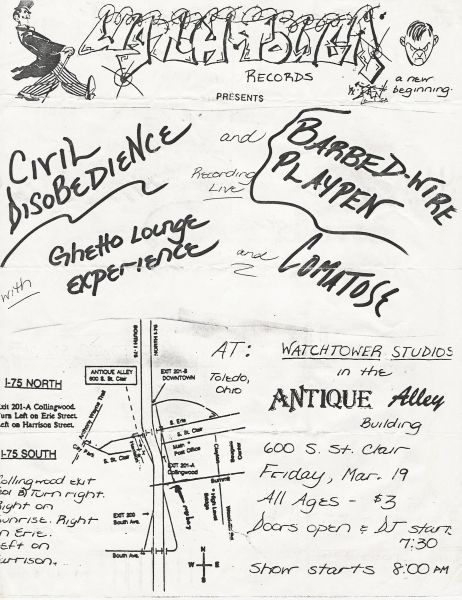 WATCHTOWER
RECORDS
PRESENTS
a new
beginning.
CIVIL
DISOBEDIENCE
and
Recording
Live
BARBED-WIRE
PLAYPEN
with
Ghetto Lounge
EXPERIENCE
and
COMATOSE
AT:
Toledo,
Ohio
WATCHTOWER STUDIOS
in the
ANTIQUE Alley
Building
600 S. St. Clair
Friday, Mar. 19
All Ages - $3
Doors open & DJ start
7:30
Show starts 8:00 PM
I-75 NORTH
xit 201-A Collingwood.
urn Left on Erie Street.
Left on Harrison Street.
I-75 SOUTH
ollingwood exit
01 B) Turn right.
Right on
unrise. Right
n Erie.
eft on
rrison.
SOUTH I-75
ANTIQUE ALLEY
600 S. St. Clair
EXIT 201-B
DOWNTOWN
Anthony Wayne Trail
City Park
S. St. Clair
S. Erie
S. St. Clair
Main
Post Office
EXIT 201-A
Collingwood
Summit
High Level
Bridge
EXIT 200
South Ave.
South Ave.
N
W
E
S